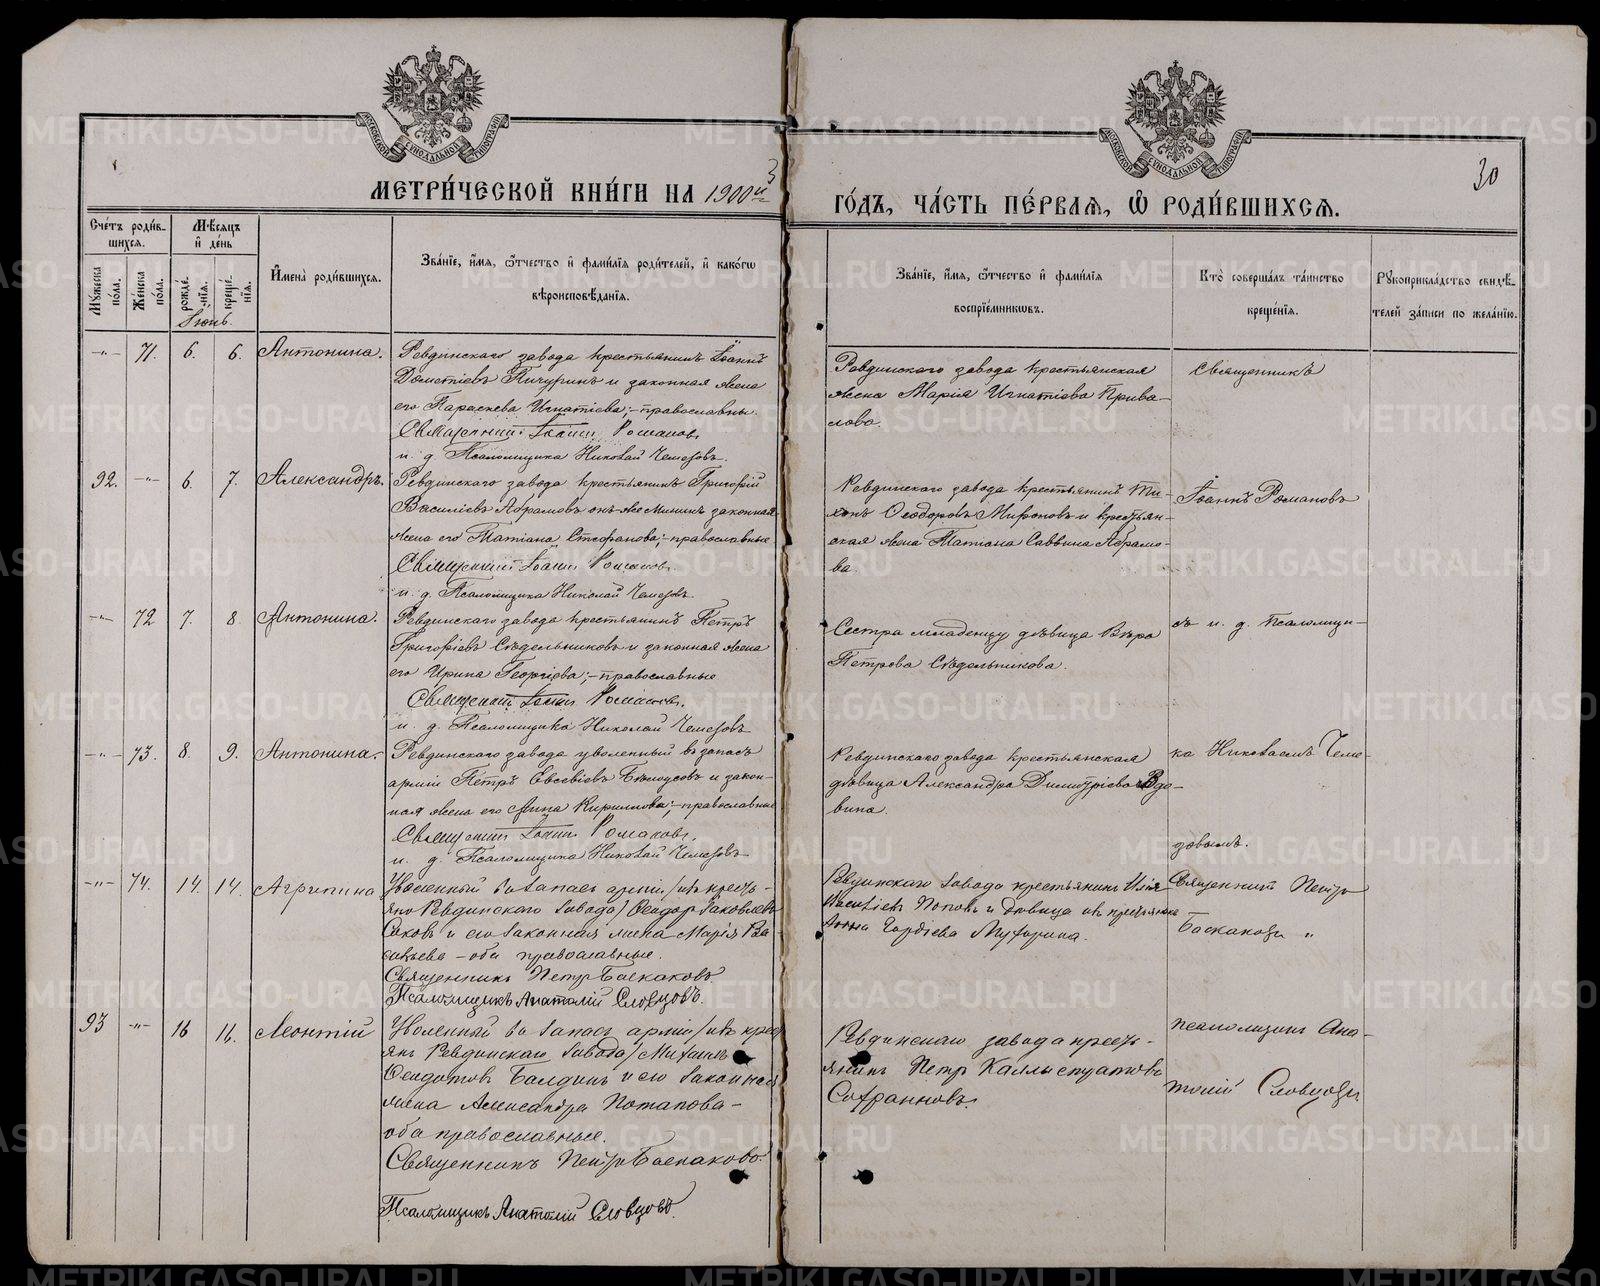 МЕТРИ́ЧЕСКОЙ КНИ́ГИ НА 1900й 3
ГО́ДЪ, ЧА́СТЬ ПЕ́РВАѦ, Ѡ҆ РОДИ́ВШИХСѦ.
30
МОСКОВСКОЙ СѴНОДАЛЬНОЙ ТИПОГРАФІИ
МОСКОВСКОЙ СѴНОДАЛЬНОЙ ТИПОГРАФІИ
Сче́тъ роди́в-
шихсѧ.
Мꙋ́жеска по́ла.
Же́нска по́ла.
Мѣ́сѧцъ и҆ де́нь
рожде́-
нїѧ.
креще́-
нїѧ.
Іюнь.
И҆мена̀ роди́вшихсѧ.
Зва́нїе, и҆́мѧ, ѻ҆́тчество и҆ фами́лїѧ роди́телей, и҆ како́гѡ
вѣроисповѣ́данїѧ.
Зва́нїе, и҆́мѧ, ѻ҆́тчество и҆ фами́лїѧ
воспрїе́мникѡвъ.
Кто̀ соверша́лъ та́инство
креще́нїѧ.
Рꙋкоприкла́дство свидѣ́-
телей за́писи по жела́нїю.
—"— 71. 6. 6. Антонина.
Ревдинскаго завода крестьянинъ Іоаннъ
Дометіевъ Пичугинъ и законная жена
его Параскева Игнатіева; – православны.
Священникъ Іоаннъ Романовъ.
и. д. Псаломщика Николай Чемезовъ.
Ревдинскаго завода крестьянская
жена Марія Игнатіева Прива-
лова.
Священникъ
92. —"— 6. 7. Александръ.
Ревдинскаго завода крестьянинъ Григорій
Василіевъ Абрамовъ онъ же Мининъ законная
жена его Татіана Стефанова; – православные
Священникъ Іоаннъ Романовъ.
и. д. Псаломщика Николай Чемезовъ.
Ревдинскаго завода крестьянинъ Ти-
хонъ Ѳеодоровъ Мироновъ и крестьян-
ская жена Татіана Саввина Абрамо-
ва.
Іоаннъ Романовъ
—"— 72 7. 8. Антонина.
Ревдинскаго завода крестьянинъ Петръ
Григоріевъ Сѣдельниковъ и законная жена
его Ирина Георгіева; – православные
Священникъ Іоаннъ Романовъ.
и. д. Псаломщика Николай Чемезовъ
Сестра младенцу дѣвица Вѣра
Петрова Сѣдельникова.
съ и. д. Псаломщи-
—"— 73. 8. 9. Антонина.
Ревдинскаго завода уволенный въ запасъ
арміи Петръ Евсевіевъ Бѣлоусовъ и закон-
ная жена его Анна Кириллова; – православные
Священникъ Іоаннъ Романовъ.
и. д. Псаломщика Николай Чемезовъ
Ревдинскаго завода крестьянская
дѣвица Александра Димитріева Вдо-
вина.
ка Николаемъ Чеме-
зовымъ.
—"— 74. 14. 14. Агрипина
Уволенный въ запасъ арміи /изъ кресть-
янъ Ревдинскаго завода/ Ѳеодоръ Іаковлевъ
и его законная жена Марія Ва-
сильева – оба православные.
Священникъ Петръ Баскаковъ.
Псаломщикъ Анатолій Словцовъ.
Ревдинскаго завода крестьянинъ Илія
Поповъ и дѣвица изъ крестьянъ
Анна
Священникъ Петръ
Баскаковъ "
93 —"— 16 16. Леонтій
Уволенный въ запасъ арміи /изъ крест
янъ Ревдинскаго завода/ Михаилъ
Ѳеодотовъ Балдинъ и его законная
жена Александра Потапова –
оба православные.
Священникъ Петръ Баскаковъ.
Псаломщикъ Анатолій Словцовъ.
Ревдинскаго завода кресть-
янинъ Петръ Каллистратовъ
Софроновъ.
псаломщикъ Ана-
толій Словцовъ.
METRIKI.GASO-URAL.RU